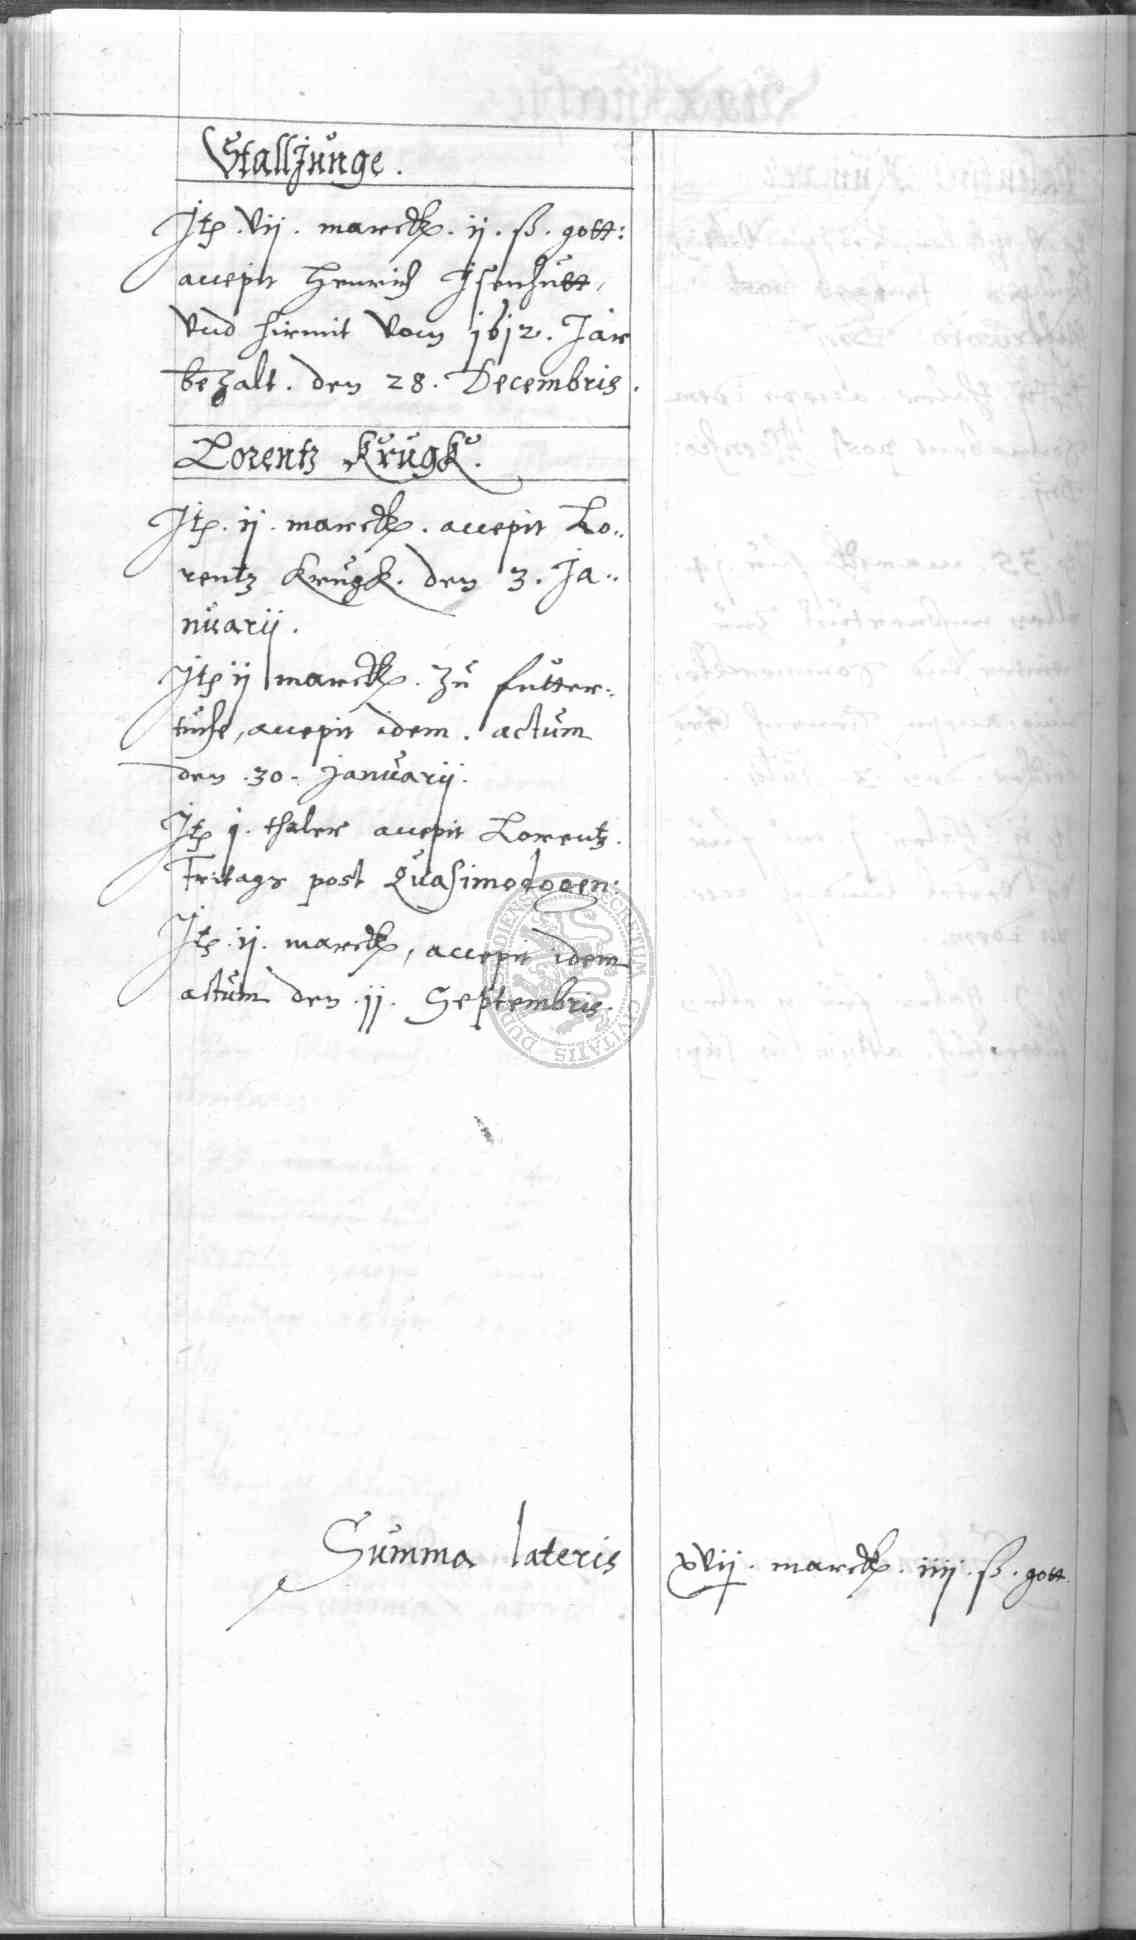 Stalljunge.
Jtz. vij. marck. ij. ß. gott:
accepit Henrich Jsenhutt,
vnd hirmit vom 1612. Jar
bezalt. den 28. Decembris.
Lorentz Krugk.
Jtz. ij. marck. accepit Lo..
rentz Krugk. den 3. Ja..
nuarij.
Jtz ij marck. zu futter.
tuche, accepit idem. actum
den .30. Januarij.
Jtz j. thaler accepit Lorentz.
Fritags post Quasimodogen:
Jtz. ij. marck, accepit idem
actum den .11. Septembris.
DUDERSTADIENSIS SECRETUM CIVITATIS
Summa lateris xvij. marck. iiij. ß. gott.